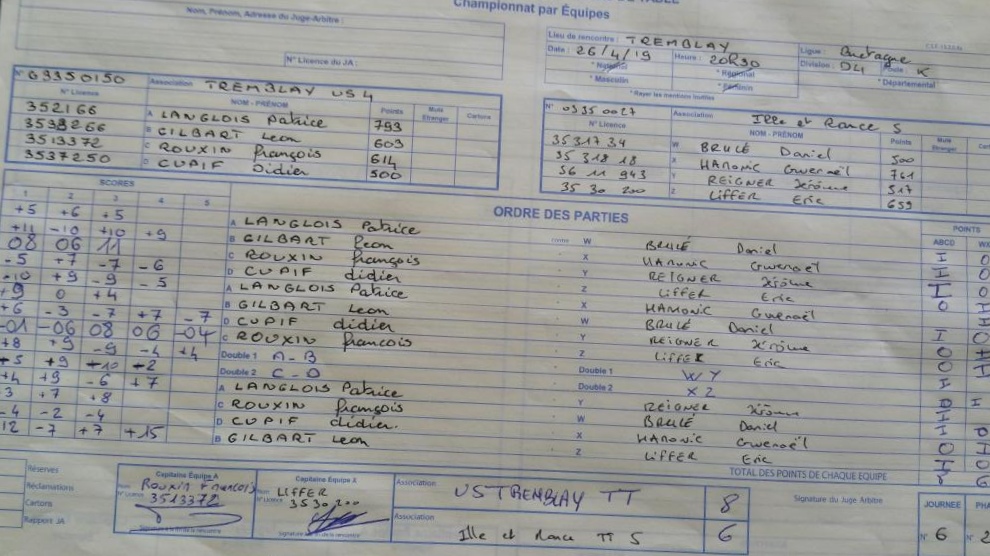 Championnat par Équipes
Nom, Prénom, Adresse du Juge-Arbitre :
N° Licence du JA :
Lieu de rencontre : TREMBLAY
Date : 26/4/19 Heure : 20H30
Ligue : Bretagne
Division : D4 Poule : K
* National * Régional * Départemental
* Masculin * Féminin
* Rayer les mentions inutiles
N° 03350150 Association TREMBLAY US 4
N° Licence NOM - PRÉNOM Points Muté Étranger Cartons
352166 A LANGLOIS Patrice 793
3538266 B GILBART Leon 603
3513372 C ROUXIN françois 614
3537250 D CUPIF Didier 500
N° 03350027 Association Ille et Rance 5
N° Licence NOM - PRÉNOM Points Muté Étranger
3531734 W BRULÉ Daniel 500
35 318 18 X HAMONIC Gwenaël 761
56 11 943 Y REIGNER Jérôme 517
35 30 200 Z LIFFER Eric 659
SCORES
ORDRE DES PARTIES
POINTS
1 2 3 4 5
ABCD WX
+5 +6 +5 A LANGLOIS Patrice contre W BRULÉ Daniel I 0
+11 -10 +10 +9 B GILBART Leon X HAMONIC Gwenaël I 0
08 06 11 C ROUXIN françois Y REIGNER Jérôme I 0
-5 +7 -7 -6 D CUPIF didier Z LIFFER Eric 0
-10 +9 -9 -5 A LANGLOIS Patrice X HAMONIC Gwenaël
+9 0 +4 B GILBART Leon W BRULÉ Daniel I 0
+6 -3 -7 +7 -7 D CUPIF didier Y REIGNER Jérôme 0
-01 -06 08 06 -04 C ROUXIN francois Z LIFFER Eric 0
+8 +9 -9 -4 +4 Double 1 A-B Double 1 WY I
+5 +9 +10 +2 Double 2 C-D Double 2 XZ
+4 +9 -6 +7 A LANGLOIS Patrice Y REIGNER Jérôme
3 +7 +8 C ROUXIN françois W BRULÉ Daniel I
-4 -2 -4 D CUPIF didier. X HAMONIC Gwenaël 0
12 -7 +7 +15 B GILBART Leon Z LIFFER Eric I 0
TOTAL DES POINTS DE CHAQUE ÉQUIPE 8 6
Réserves
Réclamations
Cartons
Rapports JA
Capitaine Équipe A
Nom ROUXIN francois
N° Licence 3513372
Signature à la fin de la rencontre
Capitaine Équipe X
Nom LIFFER
N° Licence 3530200
Signature à la fin de la rencontre
Association US TREMBLAY TT 8
Association Ille et Rance TT 5 6
Signature du Juge Arbitre
JOURNÉE
N° 6 N° 2